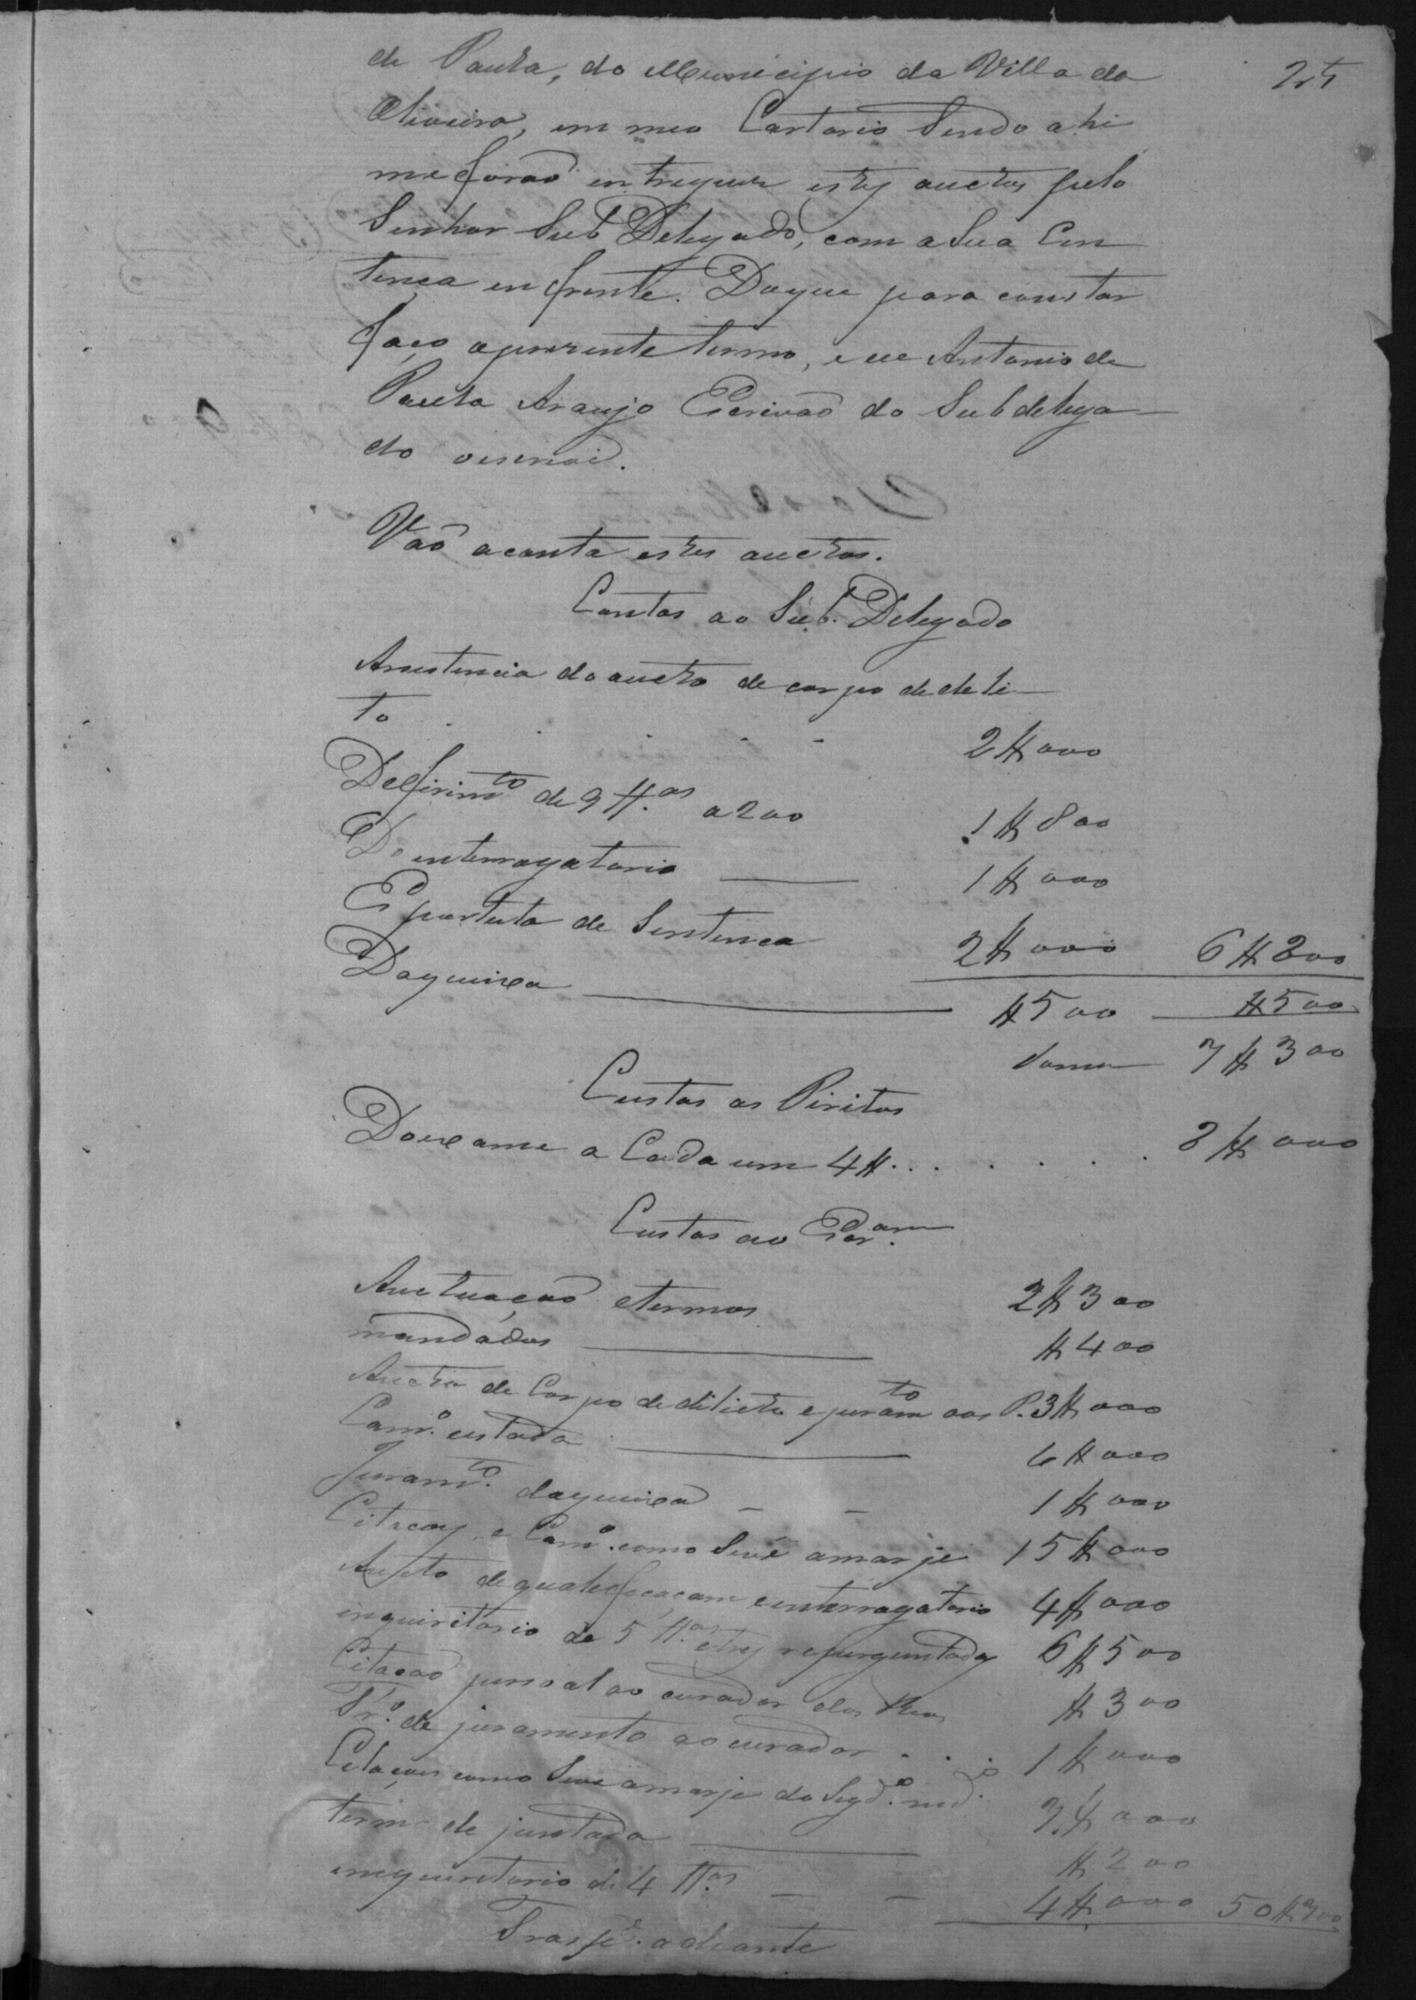 25
de Paula, do Municipio da Villa da
Oliveira, em meo Cartorio Sendo ahi
me forão entregues estes auctos pelo
Senhor Sub Delegado, com a Sua Cen
tença em frente. Do que para constar
faço apresente termo, e eu Antonio de
Paula Araujo Escrivão do Subdelega-
do oescrevi.
Vão aconta estes auctos.
Contas ao Sub. Delegado
Assistencia do aucto de corpo de deli-
to . . . . 2$000
Defirim.to de 9 tt.as a 200 1$800
Do enterrogatorio — 1$000
E partuta de Sentenca 2$000 6$800
Daqueixa — $500 $500
Soma — 7$300
Custas as Piritos
Do exame a Cada um 4$. . . . . . 8$000
Custas ao Escr.am
Auctuação etermos 2$300
mandádos — $400
Aucto de Corpo de delicto e juram.to aos P. 3$000
Cam.o estada — 6$000
Juram.to daqueixa - - 1$000
Citacoes e Cam.o como Se vê amarje 15$000
Aucto de qualefecacam e enterrogatorio 4$000
inquiritorio de 5 tt.as etres reperguntadas 6$500
Citação pessoal ao curador dos Reos $300
Tr.o de juramento ao curador . . . 1$000
Citacoes como Seve amarje do Segd.o md.o 7$000
termo de juntada — $200
enqueretorio de 4 tt.as - - 4$000 50$700
Trasp.e adeante